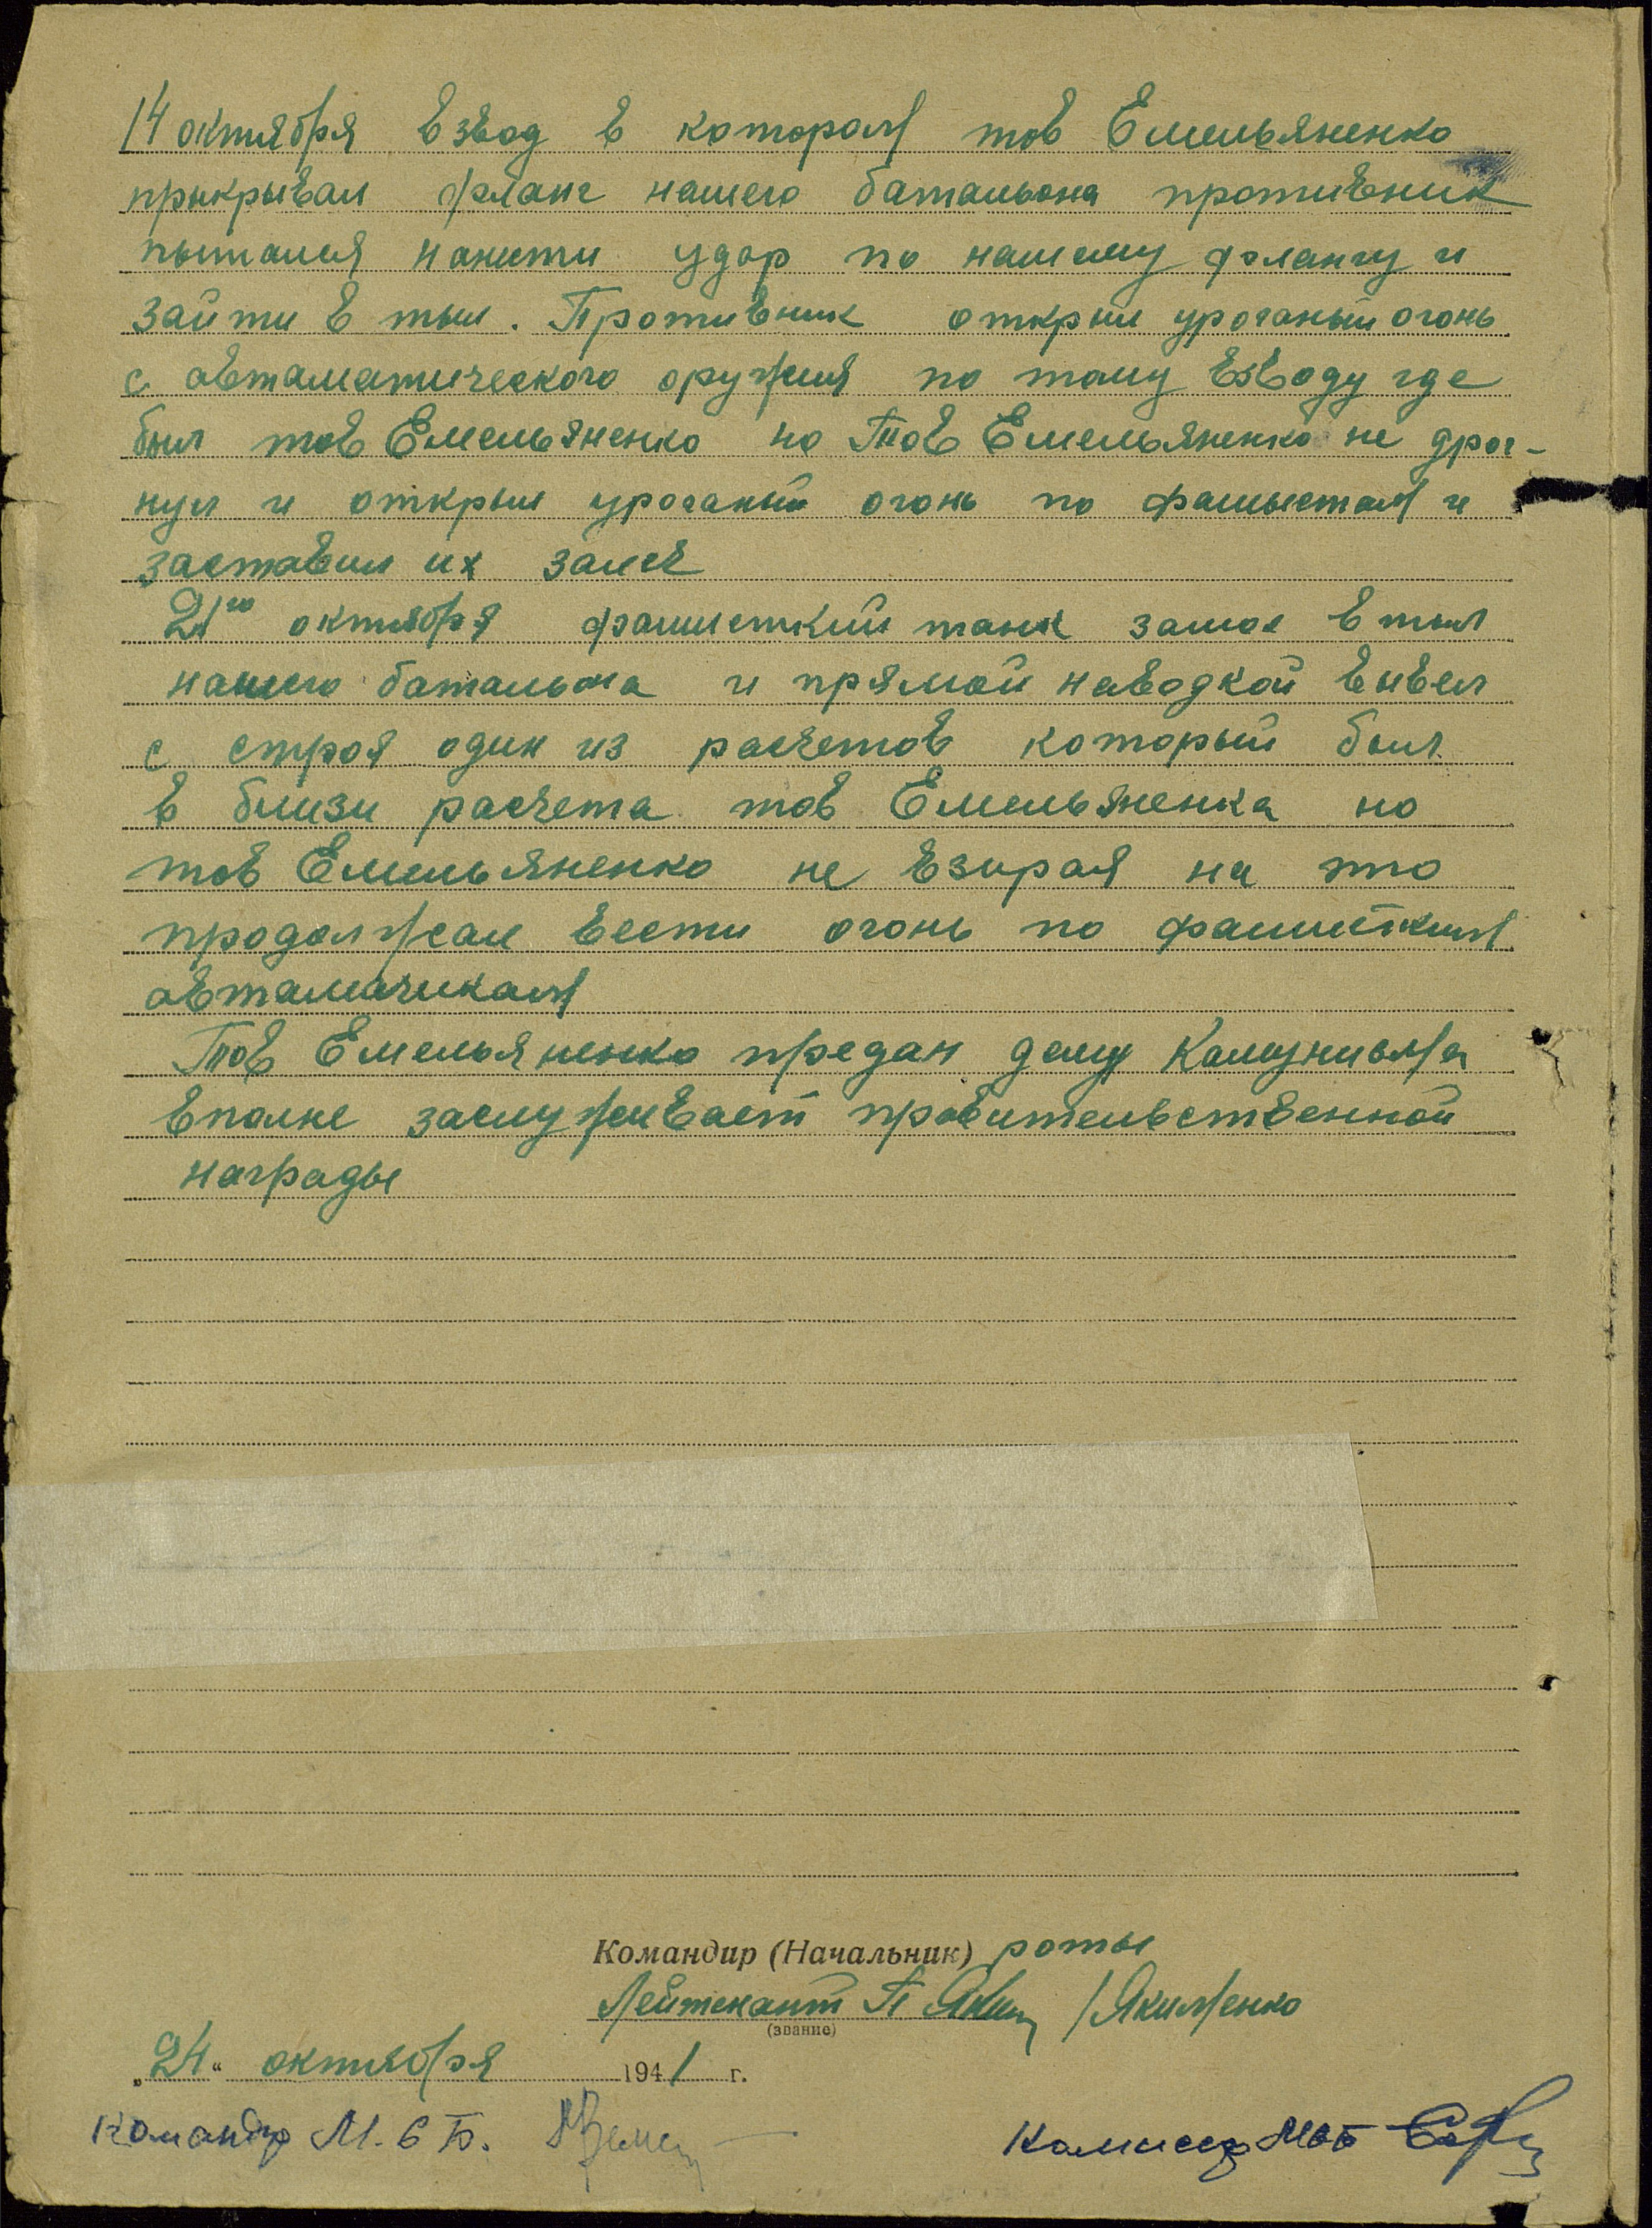 14 октября взвод в котором тов Емельяненко
прыкрывал фланг нашего батальона противник
пытался нанести удар по нашему флангу и
зайти в тыл. Противник открыл ураганый огонь
с автаматического оружия по тому взводу где
был тов Емельяненко но Тов Емельяненко не дрог-
нул и открыл ураганый огонь по фашыстам и
заставил их залеч
21го октября фашисткий танк зашол в тыл
нашего батальона и прямой наводкой вывел
с строя один из расчетов который был
в близи расчета тов Емельяненка но
тов Емельяненко не взирая на это
продолжал вести огонь по фашистким
автаматчикам
Тов Емельяненко предан делу Комунизма
вполне заслуживает правительственной
награды
Командир (Начальник) роты
Лейтенант П /Якименко
(звание)
„24“ октября 1941 г.
Командир М.С.Б.
Комиссар МСБ